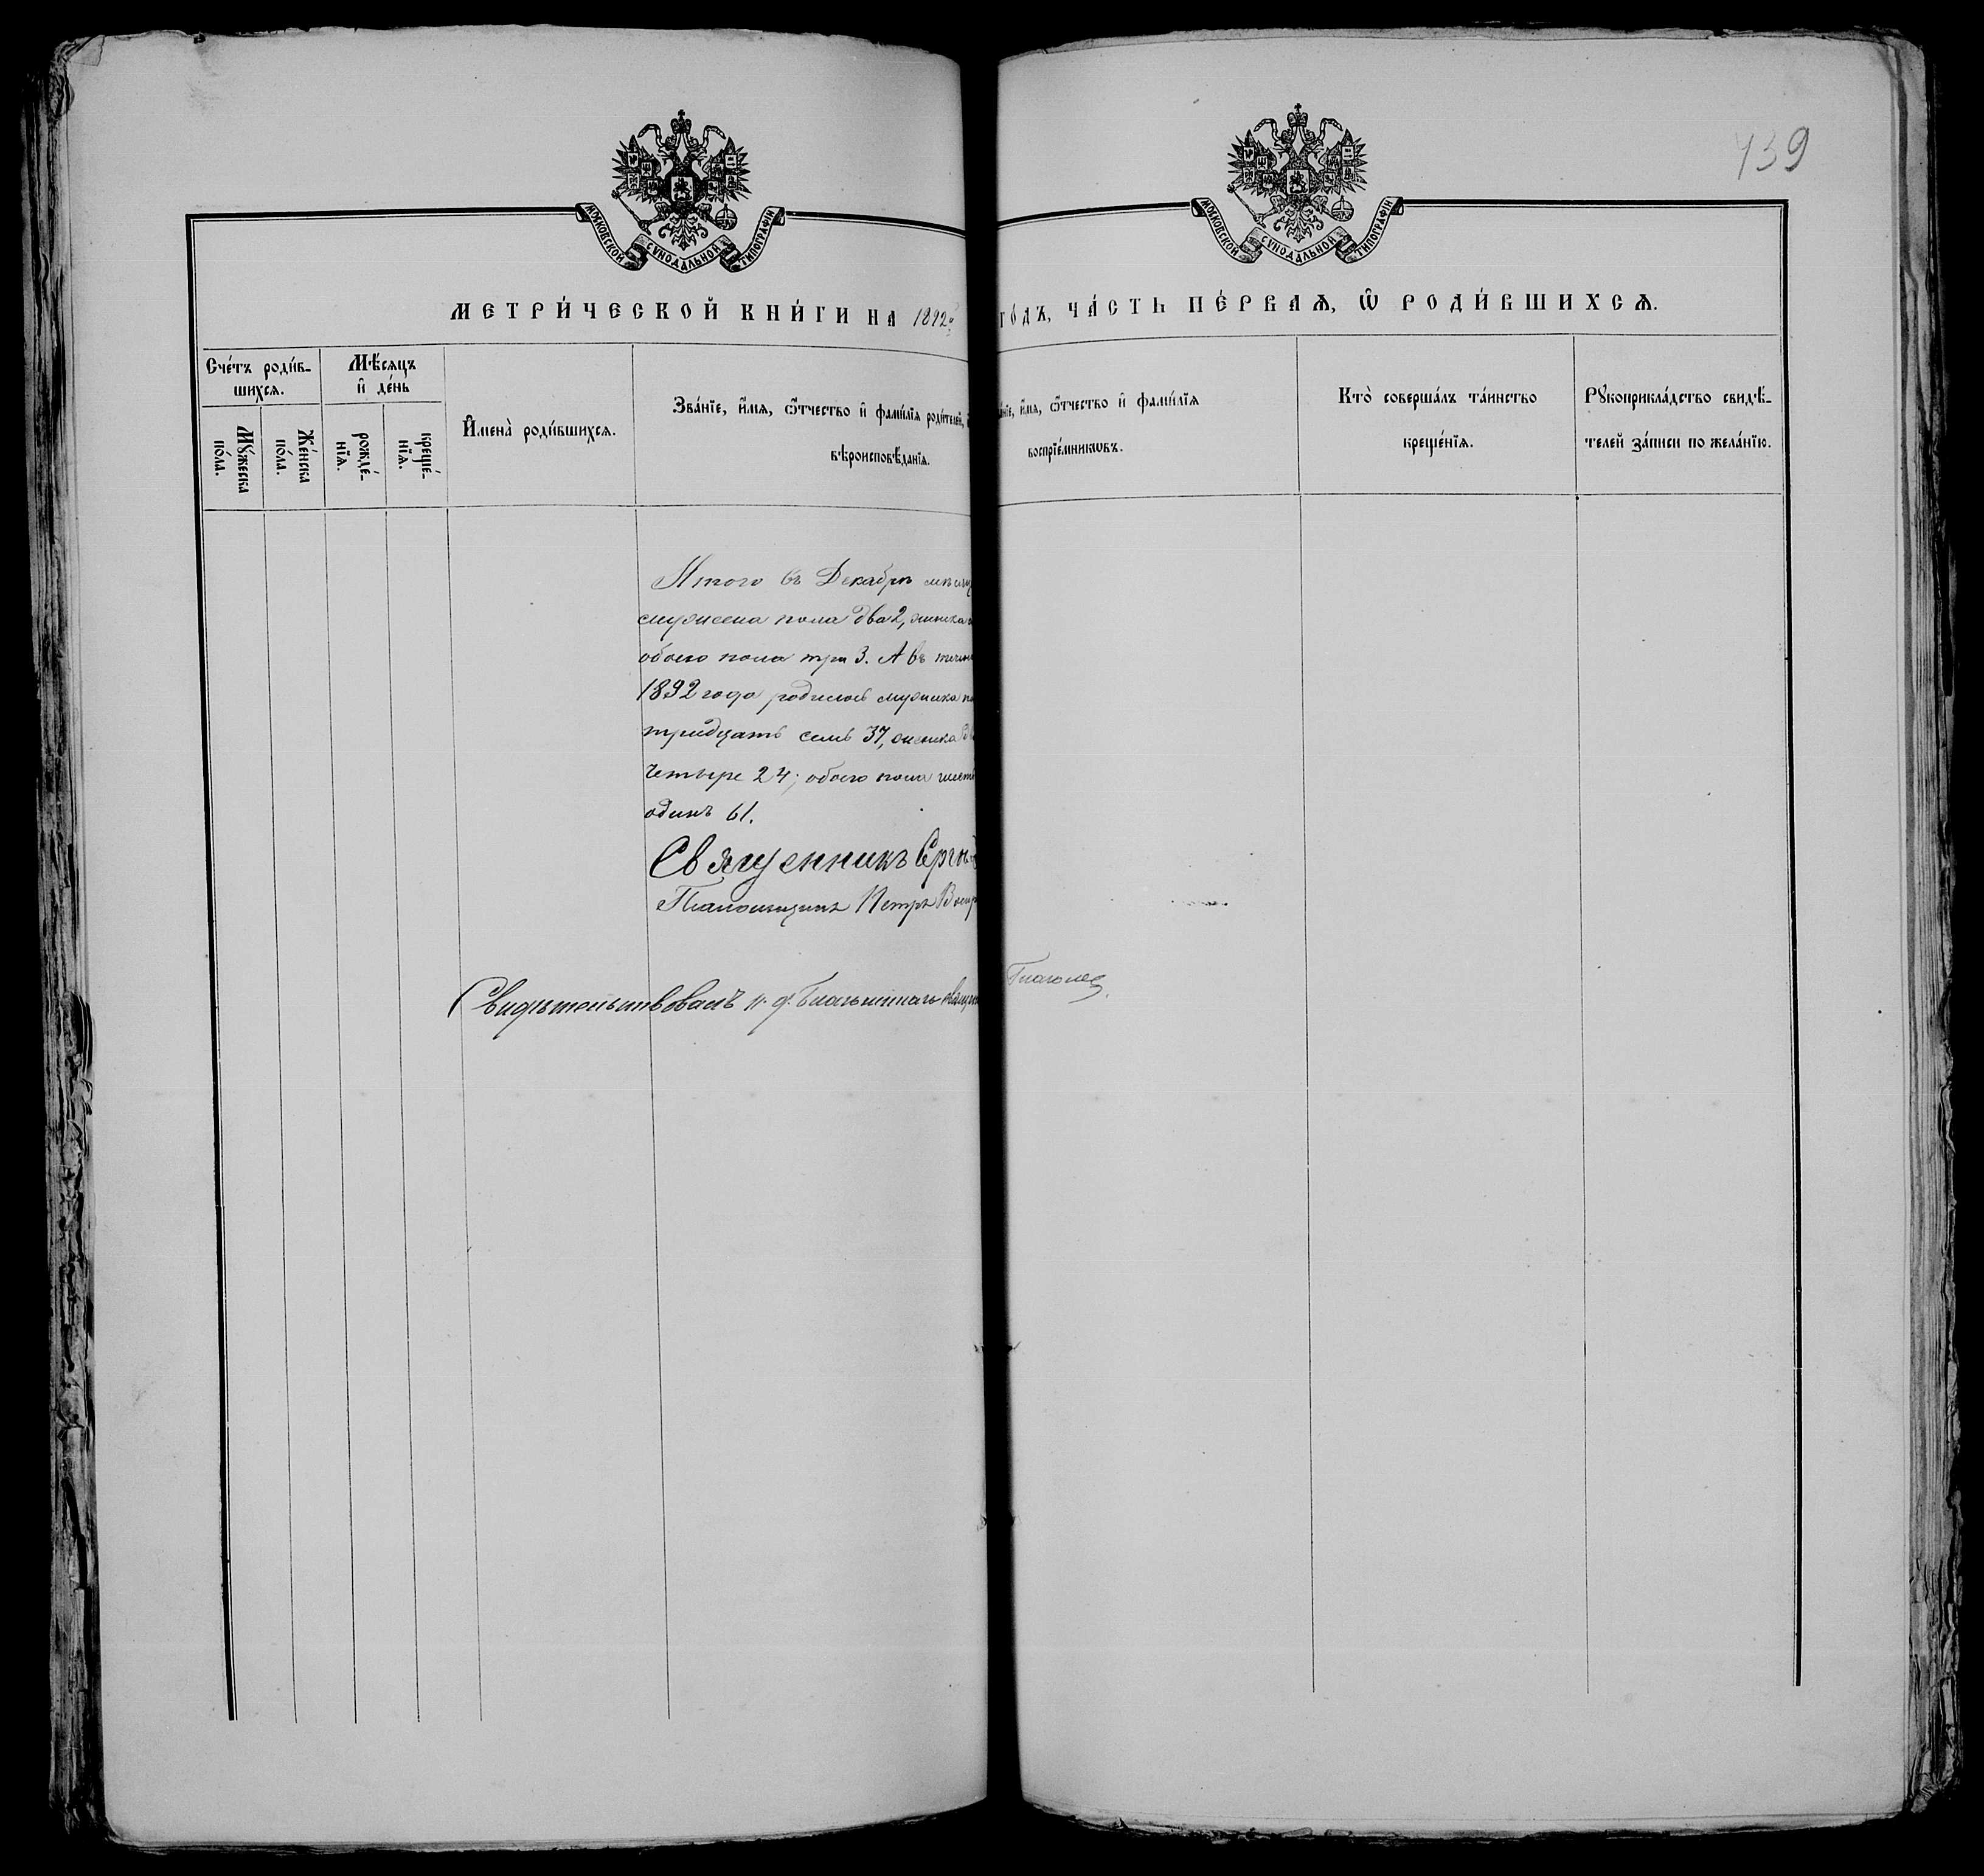 439
МОСКОВСКОЙ СУНОДАЛЬНОЙ ТИПОГРАФІИ
МОСКОВСКОЙ СУНОДАЛЬНОЙ ТИПОГРАФІИ
МЕТРИ́ЧЕСКОЙ КНИ́ГИ НА 1892 го́дъ, ЧА́СТЬ ПЕ́РВАЯ, Ѡ РОДИ́ВШИХСЯ.
Сче́тъ роди́в-
шихся.
Мꙋ́жеска
по́ла.
Же́нска
по́ла.
Мѣ́сяцъ
и де́нь
рожде́-
нїя.
креще́-
нїя.
Имена̀ роди́вшихся.
Зва́нїе, и́мя, ѻ҆́тчество и фами́лїя роди́телей,
вѣроисповѣ́данїя.
и́мя, ѻ҆́тчество и фами́лїя
воспрїе́мникѡвъ.
Кто̀ соверша́лъ та́инство
креще́нїя.
Рꙋкоприкла́дство свидѣ́-
телей за́писи по жела́нїю.
Итого въ Декабрѣ
мужеска пола два 2, женска
обоего пола три 3. А въ
1892 года родилось мужеска
тридцать семь 37, женска
четыре 24; обоего пола
одинъ 61.
Священникъ
Псаломщикъ Петръ
Свидѣтельствовалъ и. д. Благочиннаго